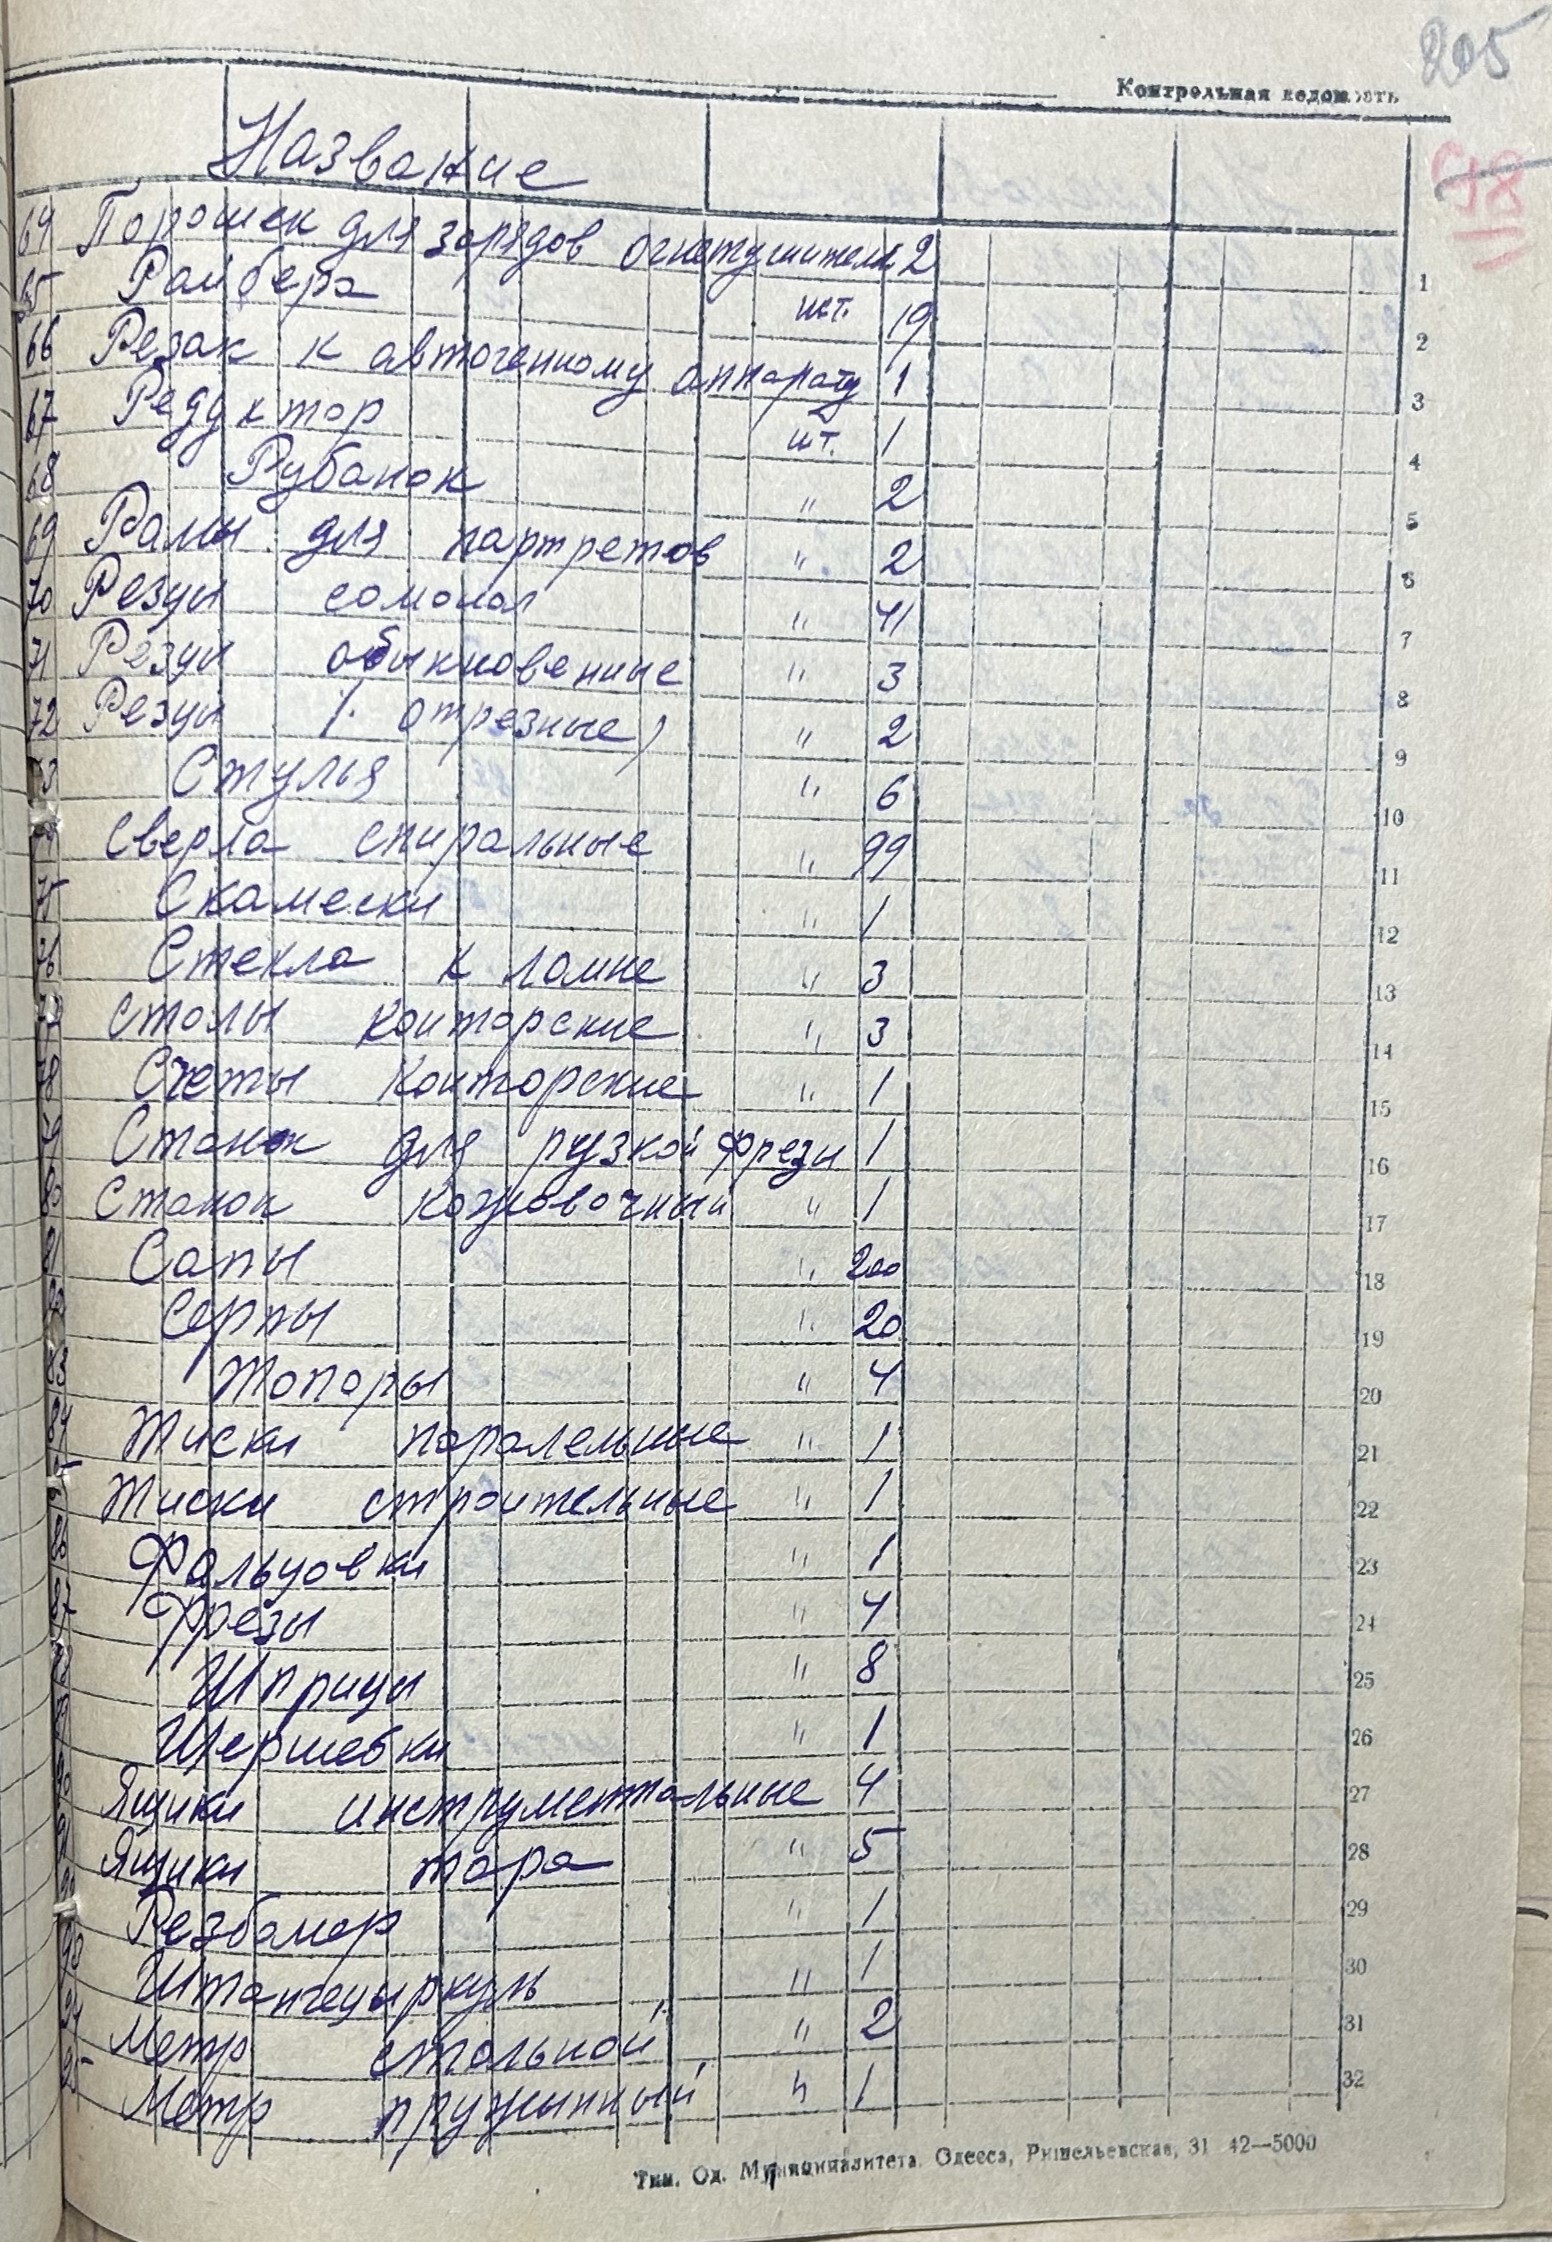 205
Контрольная ведомость
Название
64 Порошек для зарядов огнетушителя 2 1
65 Райбера шт. 19 2
66 Резак к автогенному аппарату 1 3
67 Редуктор шт. 1 4
68 Рубанок " 2 5
69 Рамы для партретов " 2 6
70 Резцы самокал " 41 7
71 Резцы обыкновенные " 3 8
72 Резцы /. отрезные) " 2 9
73 Стулья " 6 10
74 Сверла спиральные " 99 11
75 Скамейки " 1 12
76 Стекла к лампе " 3 13
77 Столы конторские " 3 14
78 Счеты конторские " 1 15
79 Станок для рузкой фрезы 1 16
80 Станок " 1 17
81 Сапы " 200 18
82 Серпы " 20 19
83 Топоры " 4 20
84 Тиски паралельные " 1 21
85 Тиски строительные " 1 22
86 Фальцовки " 1 23
87 Фрезы " 4 24
88 Шприцы " 8 25
89 Шершебки " 1 26
90 Ящики инструментальные 4 27
91 Ящики тара " 5 28
92 Резбомер " 1 29
93 Штангецыркуль " 1 30
94 Метр стальной " 2 31
95 Метр пружынный " 1 32
Тип. Од. Муниципалитета. Одесса, Ришельевская, 31 42—5000